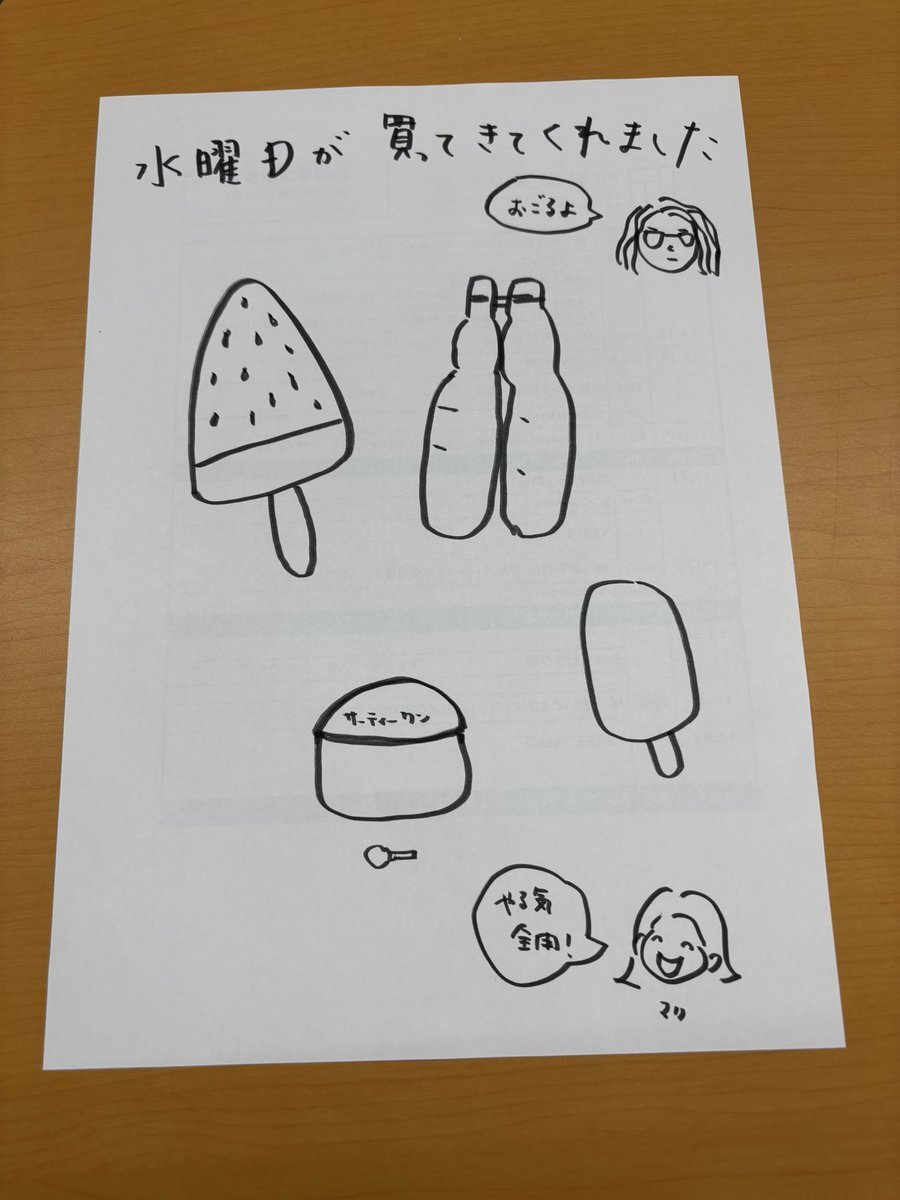 水曜Dが 買ってきてくれました
おごるよ
サーティーワン
やる気
全開!
マリ